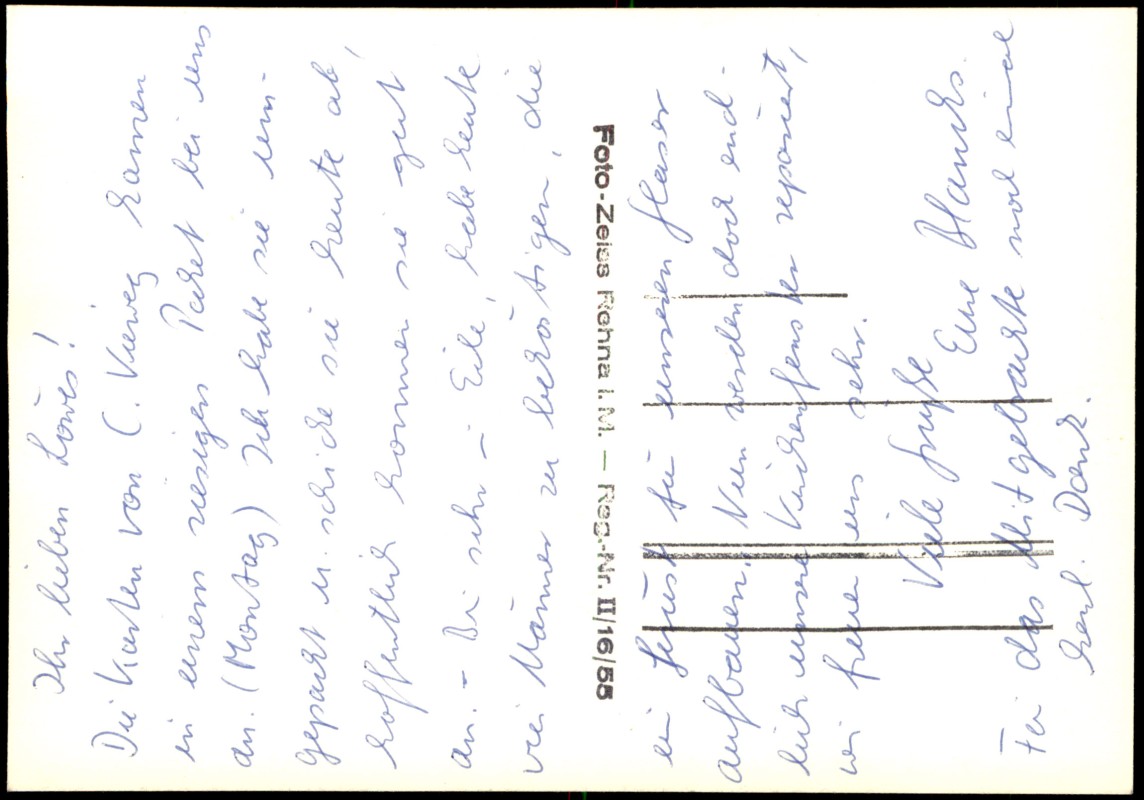 Ihr lieben Löwes!
Die Karten von C. Vieweg kamen
in einem riesigen Paket bei uns
an. (Montag) Ich habe sie um-
gepackt u. schicke sie heute ab,
hoffentlich kommen sie gut
an. – Bin sehr in Eile, habe heute
vier Männer zu beköstigen, die
Foto-Zeiss Rehna i. M. — Reg.-Nr. II/16/55
ein Gerüst für unseren Glaser
aufbauen. Nun werden doch end-
lich unsere Küchenfenster repariert,
wir freuen uns sehr.
Viele Grüße
Eure
Für das Mitgebrachte noch einmal
herzl. Dank.